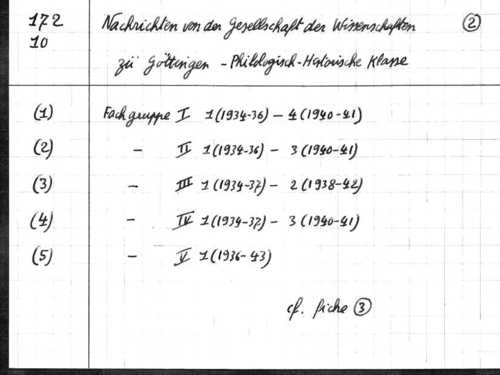 172 Nachrichten von der Gesellschaft der Wissenschaften (2)
10 zü Göttingen - Philologisch-Historische Klasse
(1) Fachgruppe I 1 (1934-36) - 4 (1940-41)
(2) - II 1 (1934-36) - 3 (1940-41)
(3) - III 1 (1934-37) - 2 (1938-42)
(4) - IV 1 (1934-37) - 3 (1940-41)
(5) - V 1 (1936-43)
cf. fiche (3)